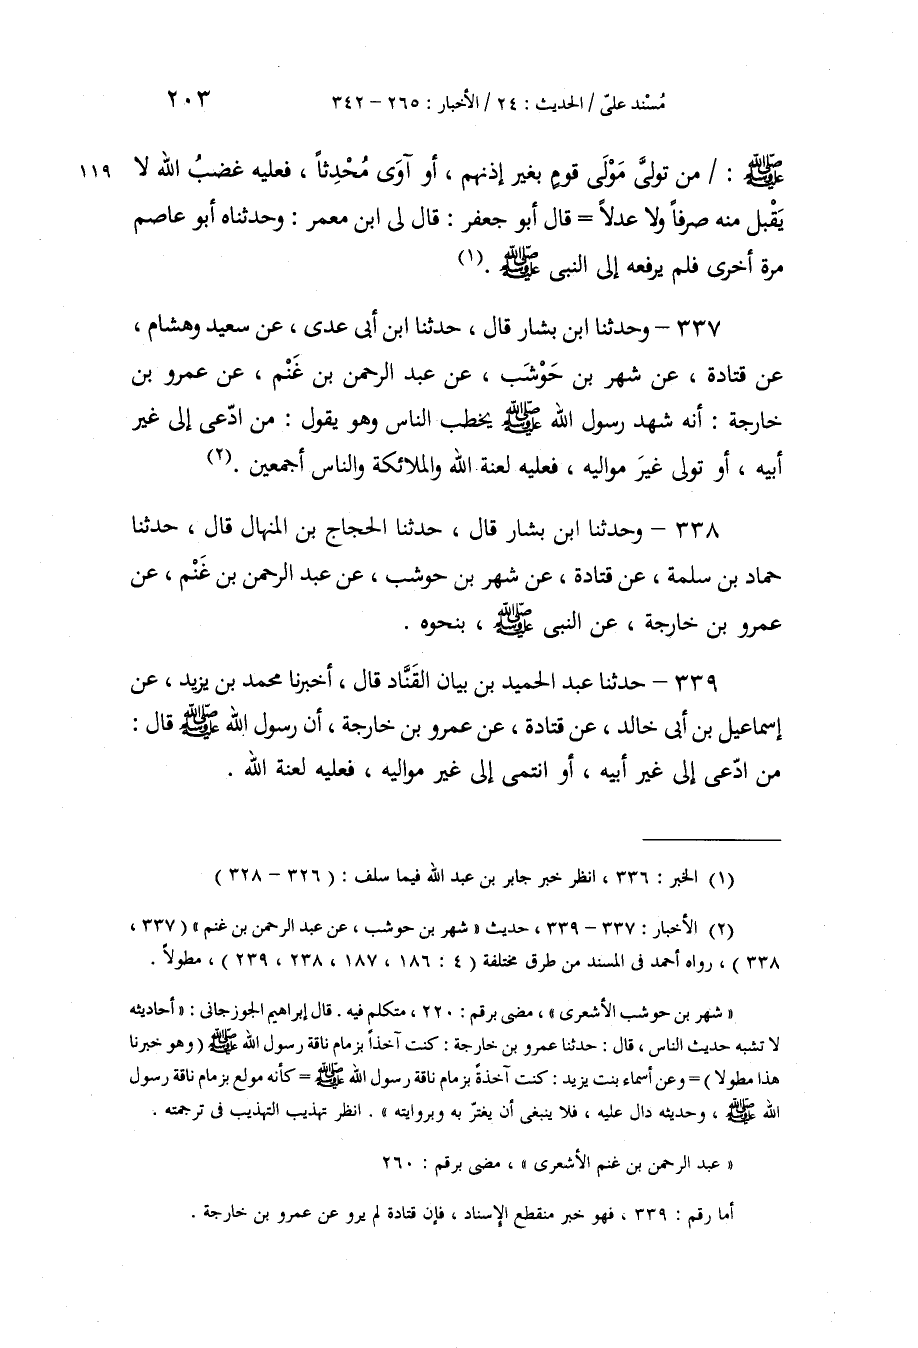 مُسْند علىّ / الحديث : ٢٤ / الأخبار : ٢٦٥ – ٣٤٢ ٢٠٣
ﷺ : / من تولىَّ مَوْلَى قومٍ بغير إذنهم ، أو آوَى مُحْدِثاً ، فعليه غضبُ الله لا ١١٩
يَقْبل منه صرفاً ولا عدلاً = قال أبو جعفر : قال لى ابن معمر : وحدثناه أبو عاصم
مرة أخرى فلم يرفعه إلى النبى ﷺ .(١)
٣٣٧ – وحدثنا ابن بشار قال ، حدثنا ابن أبى عدى ، عن سعيد وهشام ،
عن قتادة ، عن شهر بن حَوْشَب ، عن عبد الرحمن بن غَنْم ، عن عمرو بن
خارجة : أنه شهد رسول الله ﷺ يخطب الناس وهو يقول : من ادّعى إلى غير
أبيه ، أو تولى غيَر مواليه ، فعليه لعنة الله والملائكة والناس أجمعين .(٢)
٣٣٨ – وحدثنا ابن بشار قال ، حدثنا الحجاج بن المنهال قال ، حدثنا
حماد بن سلمة ، عن قتادة ، عن شهر بن حوشب ، عن عبد الرحمن بن غَنْم ، عن
عمرو بن خارجة ، عن النبى ﷺ ، بنحوه .
٣٣٩ – حدثنا عبد الحميد بن بيان القَنَّاد قال ، أخبرنا محمد بن يزيد ، عن
إسماعيل بن أبى خالد ، عن قتادة ، عن عمرو بن خارجة ، أن رسول الله ﷺ قال :
من ادّعى إلى غير أبيه ، أو انتمى إلى غير مواليه ، فعليه لعنة الله .
(١) الخبر : ٣٣٦ ، انظر خبر جابر بن عبد الله فيما سلف : ( ٣٢٦ – ٣٢٨ )
(٢) الأخبار : ٣٣٧ – ٣٣٩ ، حديث « شهر بن حوشب ، عن عبد الرحمن بن غنم » ( ٣٣٧ ،
٣٣٨ ) ، رواه أحمد فى المسند من طرق مختلفة ( ٤ : ١٨٦ ، ١٨٧ ، ٢٣٨ ، ٢٣٩ ) ، مطولاً .
« شهر بن حوشب الأشعرى » ، مضى برقم : ٢٢٠ ، متكلم فيه . قال إبراهيم الجوزجانى : « أحاديثه
لا تشبه حديث الناس ، قال : حدثنا عمرو بن خارجة : كنت آخذاً بزمام ناقة رسول الله ﷺ ( وهو خبرنا
هذا مطولا ) = وعن أسماء بنت يزيد : كنت آخذةً بزمام ناقة رسول الله ﷺ = كأنه مولع بزمام ناقة رسول
الله ﷺ ، وحديثه دال عليه ، فلا ينبغى أن يغترّ به وبروايته » . انظر تهذيب التهذيب فى ترجمته .
« عبد الرحمن بن غنم الأشعرى » ، مضى برقم : ٢٦٠
أما رقم : ٣٣٩ ، فهو خبر منقطع الإسناد ، فإن قتادة لم يرو عن عمرو بن خارجة .